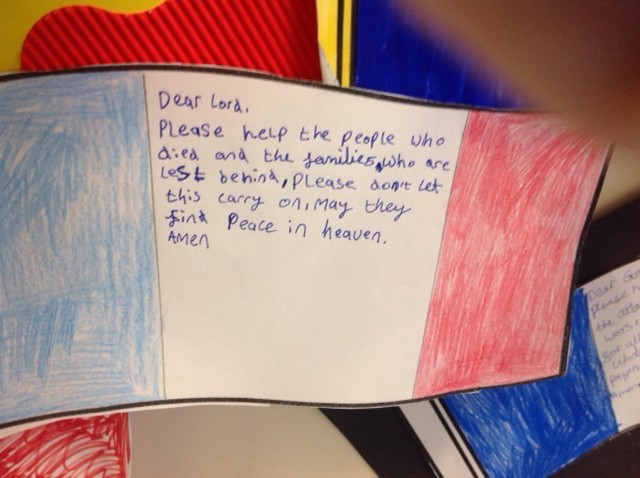 Dear Lord,
Please help the people who
died and the families, who are
left behind, please don't let
this carry on, may they
find Peace in heaven.
AMEN
Dear
please
the